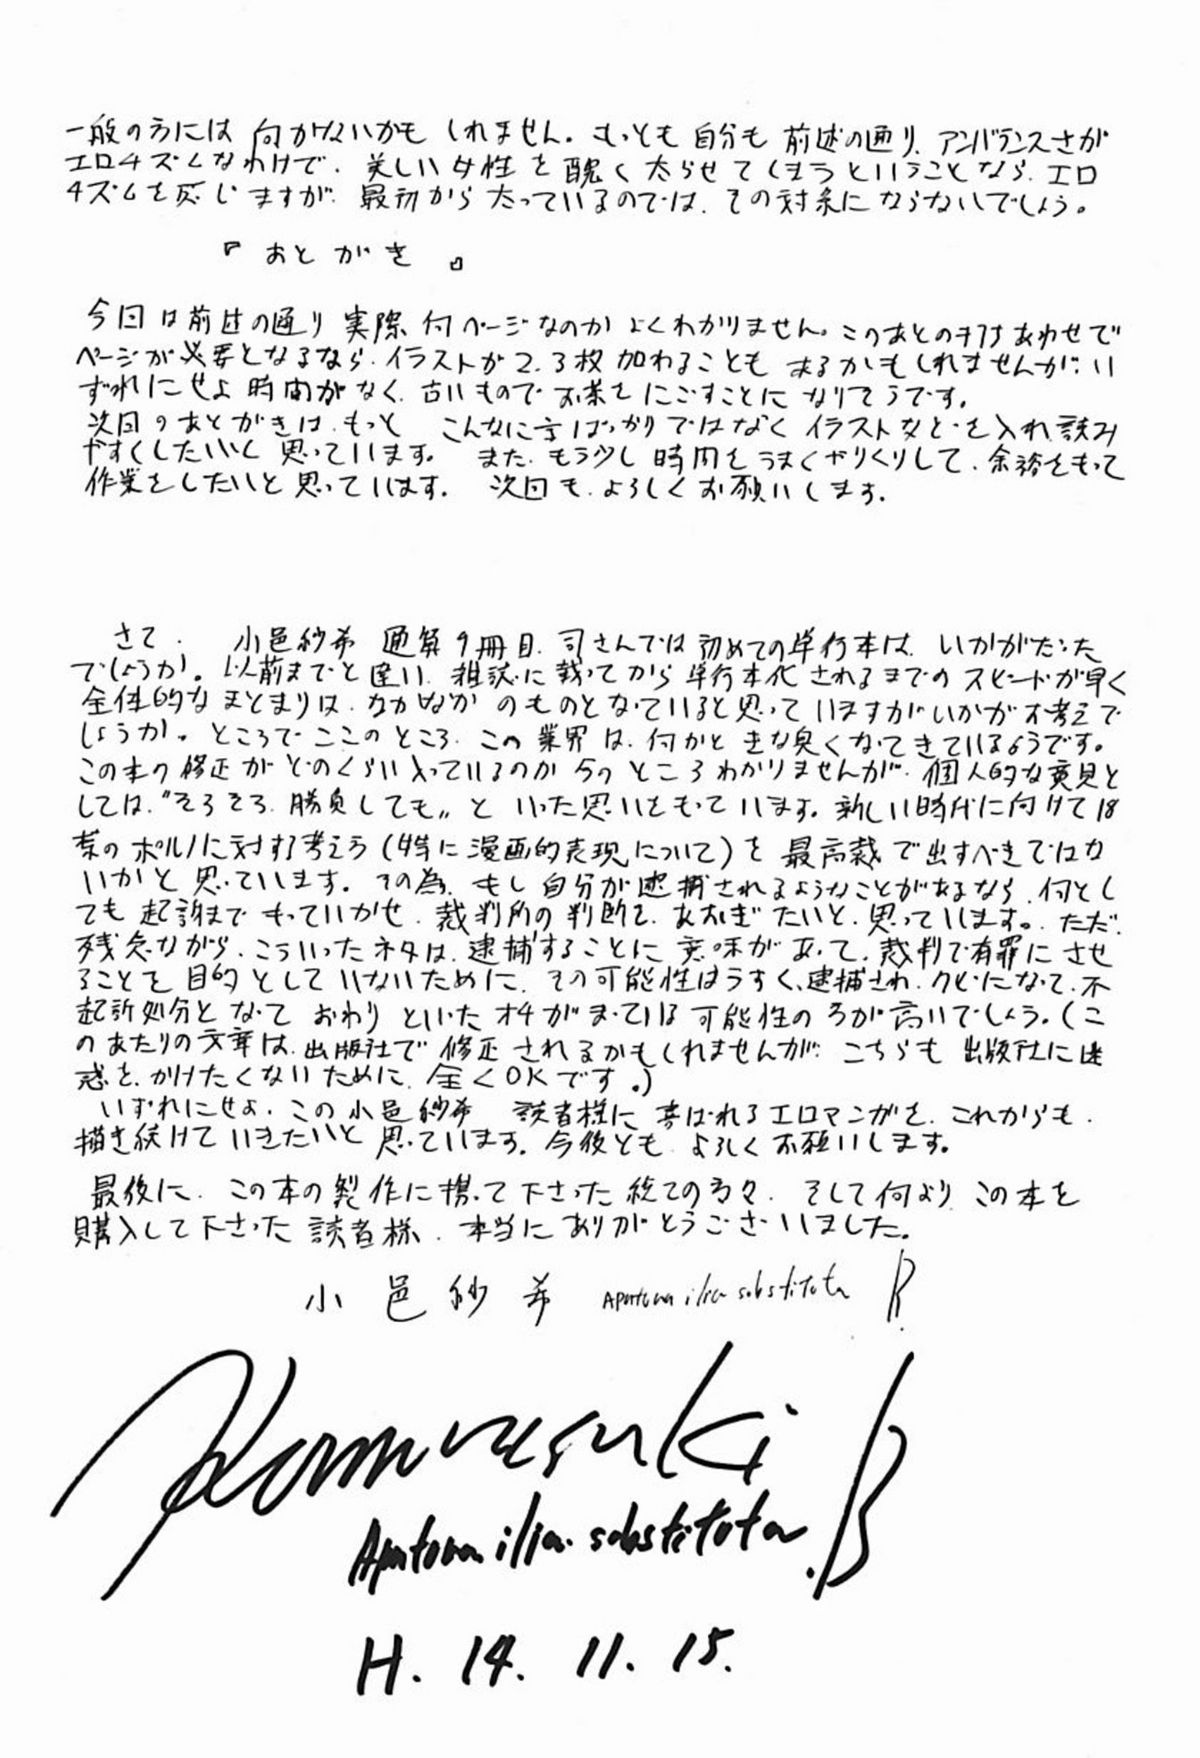 一般の方には 向かないかもしれません。もっとも 自分も 前述の通り、アンバランスさが
エロチズムなわけで、美しい女性を醜く太らせてしまうということなら、エロ
チズムを感じますが、最初から太っているのでは、その対象にならないでしょう。
『おとがき』
今回は前述の通り 実際、何ページなのかよくわかりません。このあとの打ちあわせで
ページが必要となるなら、イラストが2、3枚 加わることも あるかもしれませんが、い
ずれにせよ 時間がなく、古いもので お茶をにごすことに なりそうです。
次回のあとがきは、もっと こんなに字ばっかりではなく イラストなどを入れ 読み
やすくしたいと 思っています。 また、もう少し 時間をうまくやりくりして、余裕をもって
作業をしたいと思っています。 次回も、よろしくお願いします。
さて、 小邑紗希 通算9冊目、司さんでは初めての単行本は、いかがだった
でしょうか。以前までと違い、雑誌に載ってから 単行本化されるまでのスピードが早く
全体的なまとまりは、なかなかのものとなっていると思っていますがいかがお考えで
しょうか。ところで ここのところ、この業界は、何かときな臭くなってきているようです。
この本の修正がどのくらい入っているのか今のところわかりませんが、個人的な意見と
しては、“そろそろ、勝負しても〟と いった思いをもっています。新しい時代に向けて18
禁のポルノに対する考え方(特に漫画的表現について)を 最高裁で出すべきではな
いかと思っています。その為、もし自分が逮捕されるようなことがあるなら、何とし
ても 起訴までもっていかせ、裁判所の判断を、あおぎたいと、思っています。ただ、
残念ながら、こういったネタは、逮捕することに意味があって、裁判で有罪にさせ
ることを 目的としていないために、その可能性はうすく、逮捕され、クビになって、不
起訴処分となって おわりといったオチがまっている可能性の方が高いでしょう。(こ
のあたりの文章は、出版社で 修正されるかもしれませんが、こちらも 出版社に迷
惑を、かけたくないために、全くOKです。)
いずれにせよ、この小邑紗希 読者様に 喜ばれるエロマンガを、これからも、
描き続けていきたいと思っています。今後とも、よろしくお願いします。
最後に、この本の製作に携って下さった総ての方々、そして何より、この本を
購入して下さった読者様、本当にありがとうございました。
小邑紗希 Apatura ilia substituta B.
Komurasaki B.
Apatura ilia substituta
H. 14. 11. 15.